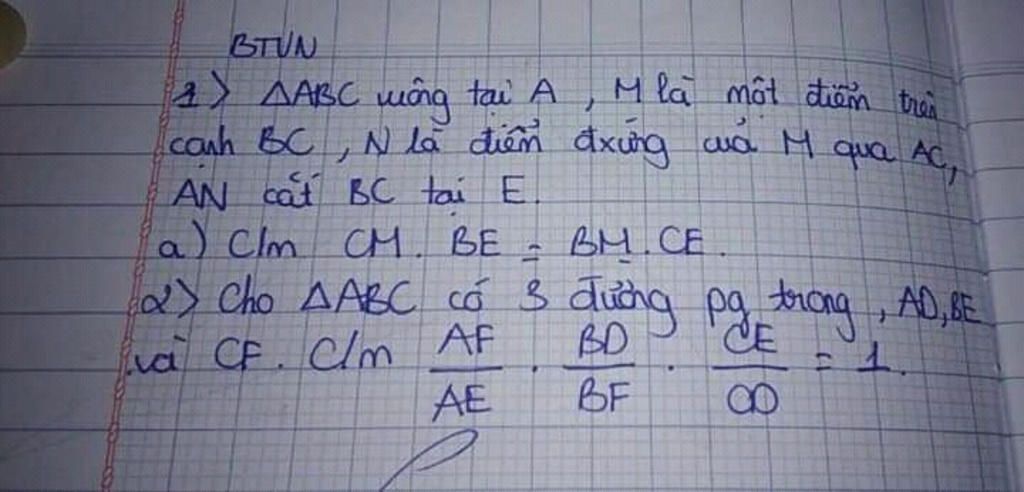 BTVN
1) ΔABC vuông tại A, M là một điểm trên
cạnh BC, N là điểm đxứng của M qua AC,
AN cắt BC tại E.
a) C/m CM. BE = BM. CE.
2) Cho ΔABC có 3 đường pg trong, AD, BE
và CF. C/m AF/AE . BD/BF . CE/CD = 1.